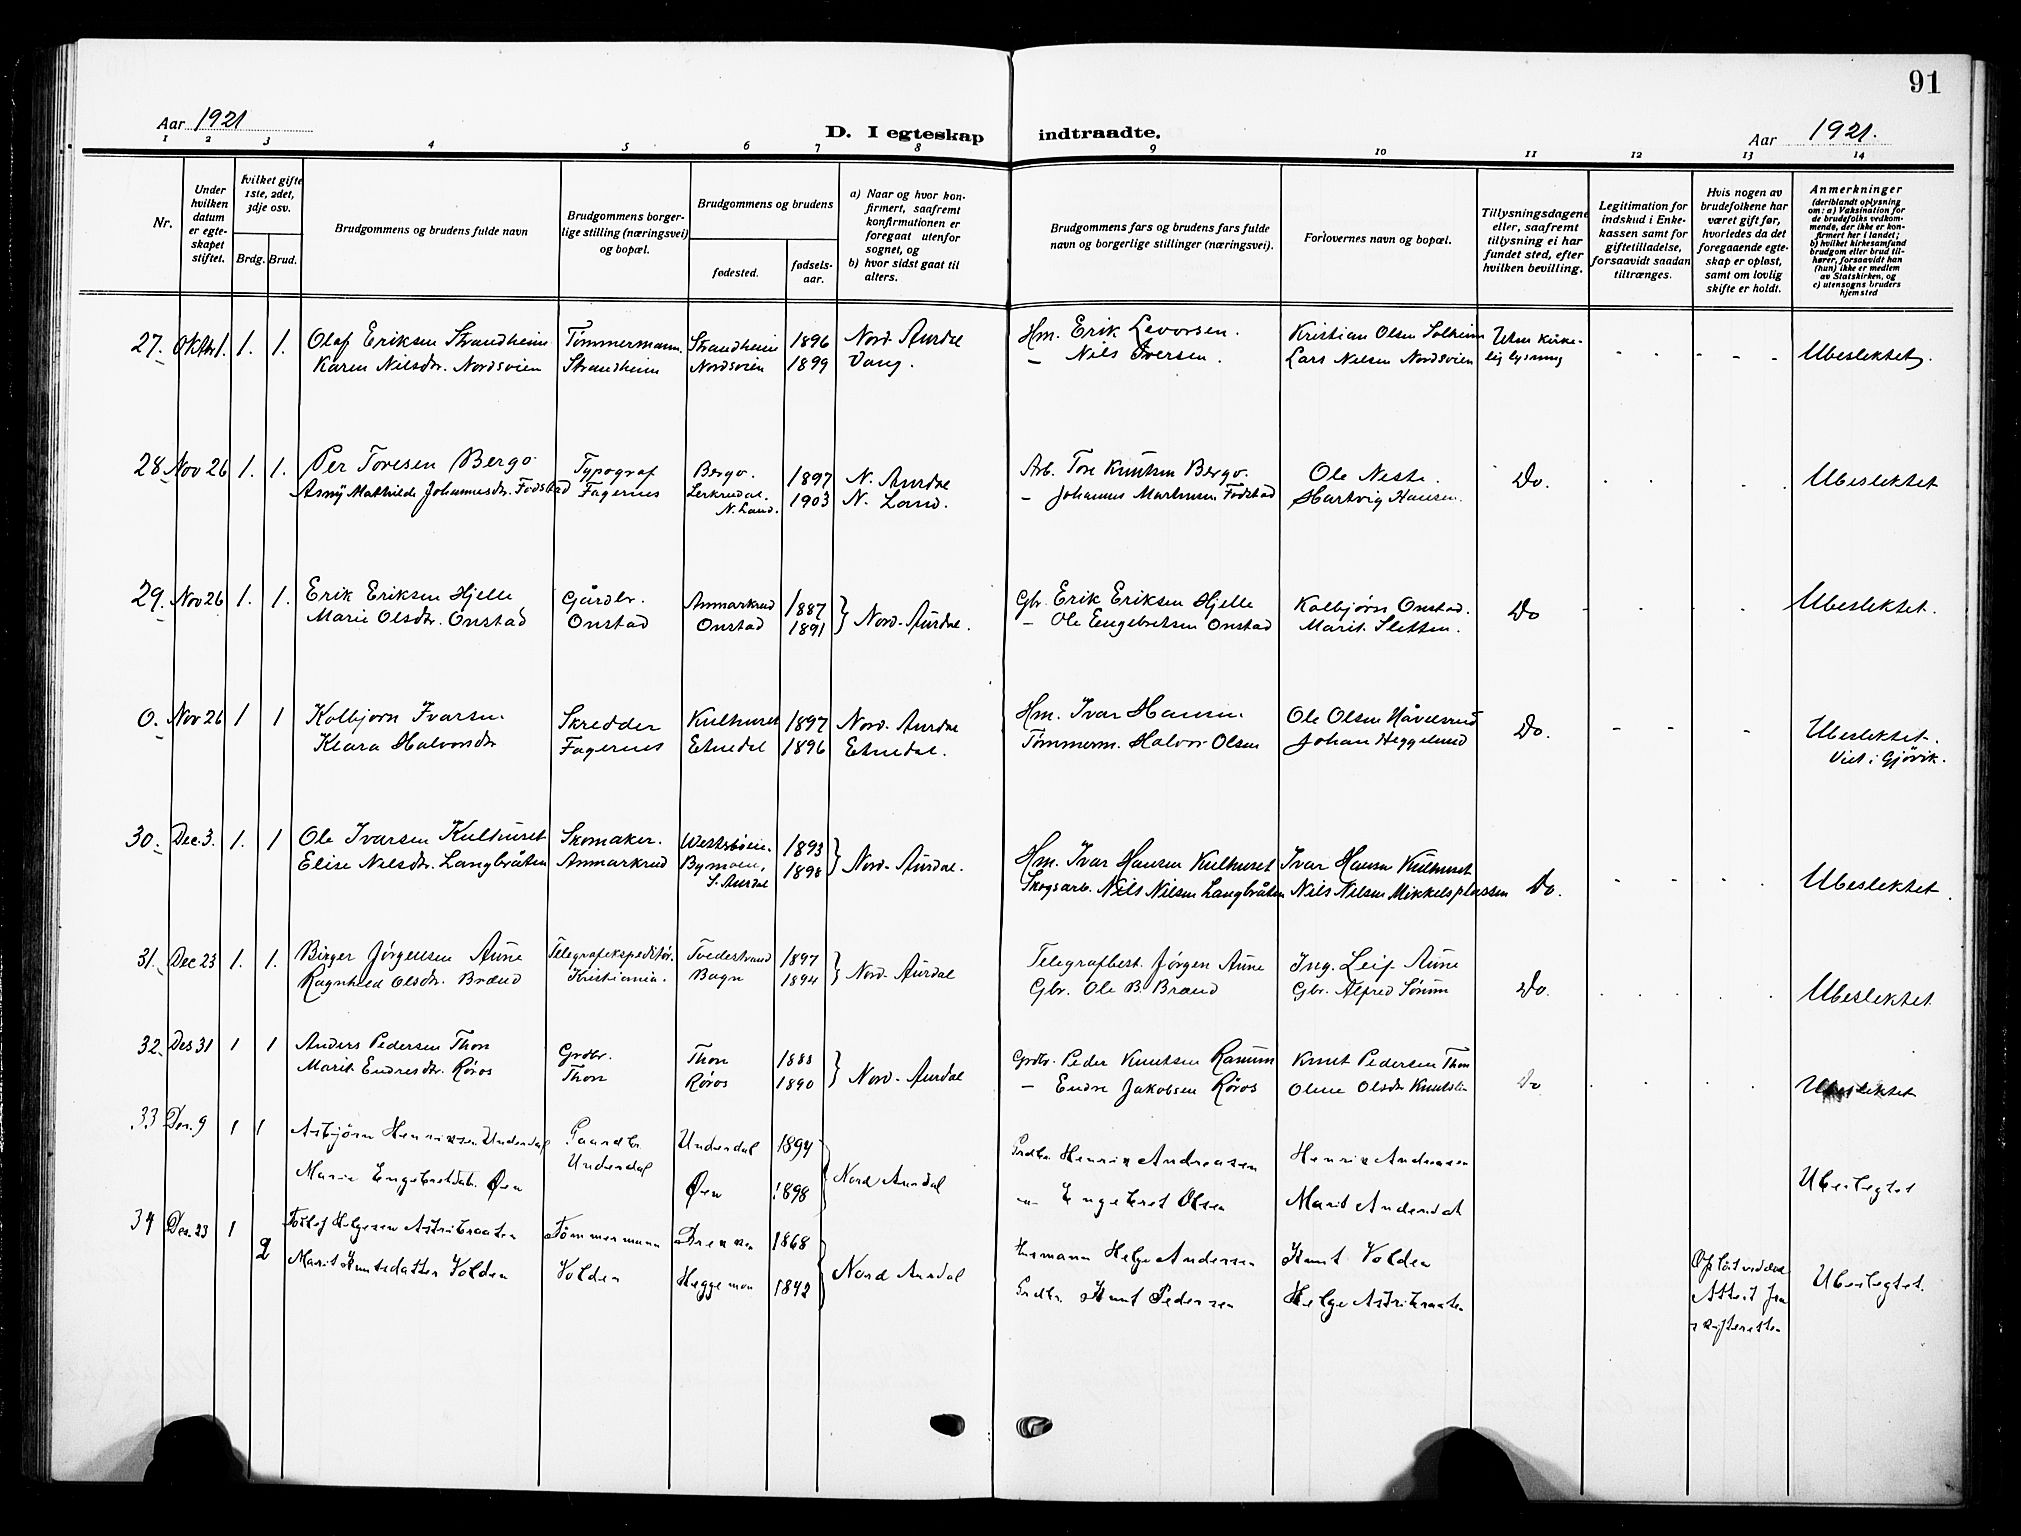 91
Aar 1921
D. I egteskap indtraadte.
Aar 1921.
1 2 3 4 5 6 7 8 9 10 11 12 13 14
Nr.
Under hvilken datum er egteskapet stiftet.
hvilket gifte 1ste, 2det, 3dje osv.
Brdg. Brud.
Brudgommens og brudens fulde navn
Brudgommens borgerlige stilling (næringsvei) og bopæl.
Brudgommens og brudens
fødested.
fødselsaar.
a) Naar og hvor konfirmert, saafremt konfirmationen er foregaat utenfor sognet, og
b) hvor sidst gaat til alters.
Brudgommens fars og brudens fars fulde navn og borgerlige stillinger (næringsvei).
Forlovernes navn og bopæl.
Tillysningsdagene eller, saafremt tillysning ei har fundet sted, efter hvilken bevilling.
Legitimation for indskud i Enkekassen samt for giftetilladelse, forsaavidt saadan tiltrænges.
Hvis nogen av brudefolkene har været gift før, hvorledes da det foregaaende egteskap er opløst, samt om lovlig skifte er holdt.
Anmerkninger
(deriblandt oplysning om: a) Vaksination for de brudefolks vedkommende, der ikke er konfirmert her i landet;
b) hvilket kirkesamfund brudgom eller brud tilhører, forsaavidt han (hun) ikke er medlem av Statskirken, og
c) utensogns bruders hjemsted
27. Oktbr 1. 1. 1. Olaf Eriksen Strandheim Tømmermann. Strandheim 1896 Nord Aurdal Hm. Erik Levorsen. Kristian Olsen Solheim Uten kirke-
Karen Nilsdr. Nordsvien Strandheim Nordsvien 1899 Vang. — Nils Iversen. Lars Nielsen Nordsvien lig lysning - - - - Ubeslektet.
28. Nov 26 1. 1. Per Toresen Bergo Typograf Bergo. 1897 N. Aurdal Arb. Tore Knutsen Bergo. Ole Neste. Do. Ubeslektet
Asny Mathilde Johannesdr. Fodstad Fagernes Lerkredal. N. Land. 1903 N. Land. — Johannes Martinsen Fodstad Hartvig Hansen.
29. Nov 26 1. 1. Erik Eriksen Hjelle Gårdbr. Anmarkrud 1887 } Nord-Aurdal. Gbr. Erik Eriksen Hjelle Kolbjørn Onstad. Do Ubeslektet.
Marie Olsdr. Onstad Onstad Onstad 1891 — Ole Engebretsen Onstad Marit Sletten.
0. Nov 26 1 1 Kolbjørn Ivarsen Skredder Kulhuset 1897 Nord-Aurdal Hm. Ivar Hansen Ole Olsen Håvelsrud Do. - - - Ubeslektet.
Klara Halvorsdr Fagernes Etnedal 1896 Etnedal. Tømmerm. Halvor Olsen Johan Heggelund Viet i Gjøvik.
30. Dec. 3. 1. 1 Ole Ivarsen Kulhuset Skomaker. 1893 } Nord-Aurdal. Hm. Ivar Hansen Kulhuset Ivar Hansen Kulhuset Do. - - - - Ubeslektet
Elise Nilsdr. Langbråten Anmarkrud Bymoen, S. Aurdal 1898 Skogsarb. Nils Nilsen Langbråten Nils Nilsen Mikkelsplassen
31. Dec 23 1. 1. Birger Jørgensen Aune Telegrafekspeditør. Tvedestrand 1897 } Nord-Aurdal Telegrafbest. Jørgen Aune Ing. Leif Aune Do. Ubeslektet
Ragnhild Olsdr. Brænd Kristiania. Bagn 1894 Gbr. Ole B. Brænd Gbr. Alfred Sørum
32. Des 31 1 1 Anders Pedersen Thon Grdbr. Thon 1888 } Nord-Aurdal Grdbr. Peder Knutsen Ranum Knut Pedersen Thon Do Ubeslektet
Marit Endresdr. Røros Thon Røros 1890 — Endre Jakobsen Røros Oline Olsdr Knutslin
33 Des. 9 1 1 Asbjørn Henriksen Underdal Gaardbr. Underdal 1894 } Nord Aurdal Grdbr. Henrik Andreasen Henrik Andreasen Ubeslegtet
Marie Engebretsdatr. Øen Underdal Øen 1898 — Engebret Olsen Marit Underdal
34 Des. 23 1 2 Tollef Helgesen Astribraaten Tømmermann 1868 } Nord Aurdal Husmann Helge Andersen Knut Volden Ubeslegtet.
Marit Knutsdatter Volden Volden Heggemon 1872 Grdbr. Knut Pedersen Helge Astribraaten
Opløst ved død Attest fra skifteretten